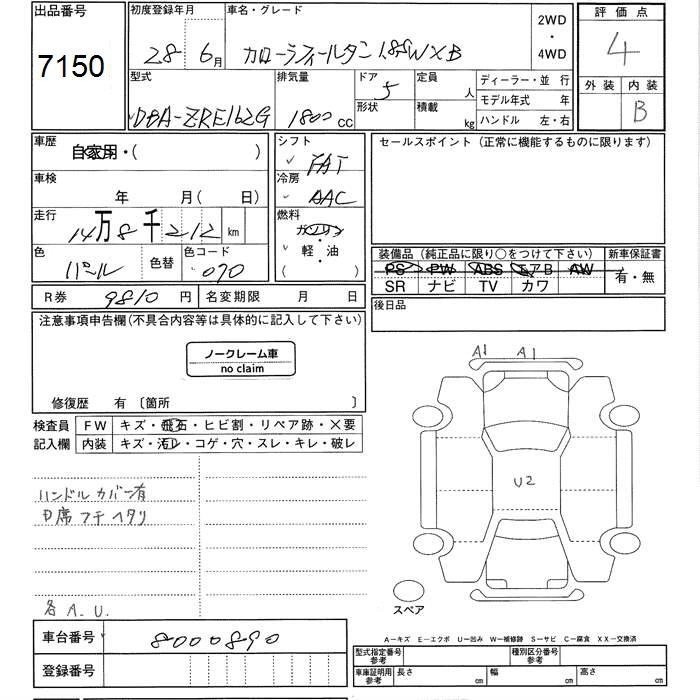 出品番号
7150
初度登録年月
28年 6月
車名・グレード
カローラフィールダー 1.8S W×B
2WD
・
4WD
評価点
4
外装 内装
B
型式
DBA-ZRE162G
排気量
1800 cc
ドア
5
形状
定員
人
積載
kg
ディーラー・並行
モデル年式 年
ハンドル 左・右
車歴
自家用・( )
シフト
FAT
セールスポイント (正常に機能するものに限ります)
車検
年 月( 日)
冷房
AAC
走行
14万8千212 km
燃料
ガソリン
軽・油
( )
色
パール
色替
色コード
070
装備品 (純正品に限り○をつけて下さい)
新車保証書
PS PW ABS エアB AW
有・無
SR ナビ TV カワ
R券 9810 円
名変期限 月 日
後日品
注意事項申告欄(不具合内容等は具体的に記入して下さい)
ノークレーム車
no claim
修復歴 有 〔箇所 〕
検査員
記入欄
FW キズ・飛石・ヒビ割・リペア跡・×要
内装 キズ・汚レ・コゲ・穴・スレ・キレ・破レ
ハンドルカバー有
D席フチヘタリ
各A.U.
A1 A1
U2
スペア
車台番号 8000890
登録番号
A−キズ E−エクボ U−凹み W−補修跡 S−サビ C−腐食 XX−交換済
型式指定番号
参考
種別区分番号
参考
車庫証明用
参考
長さ cm
幅 cm
高さ cm